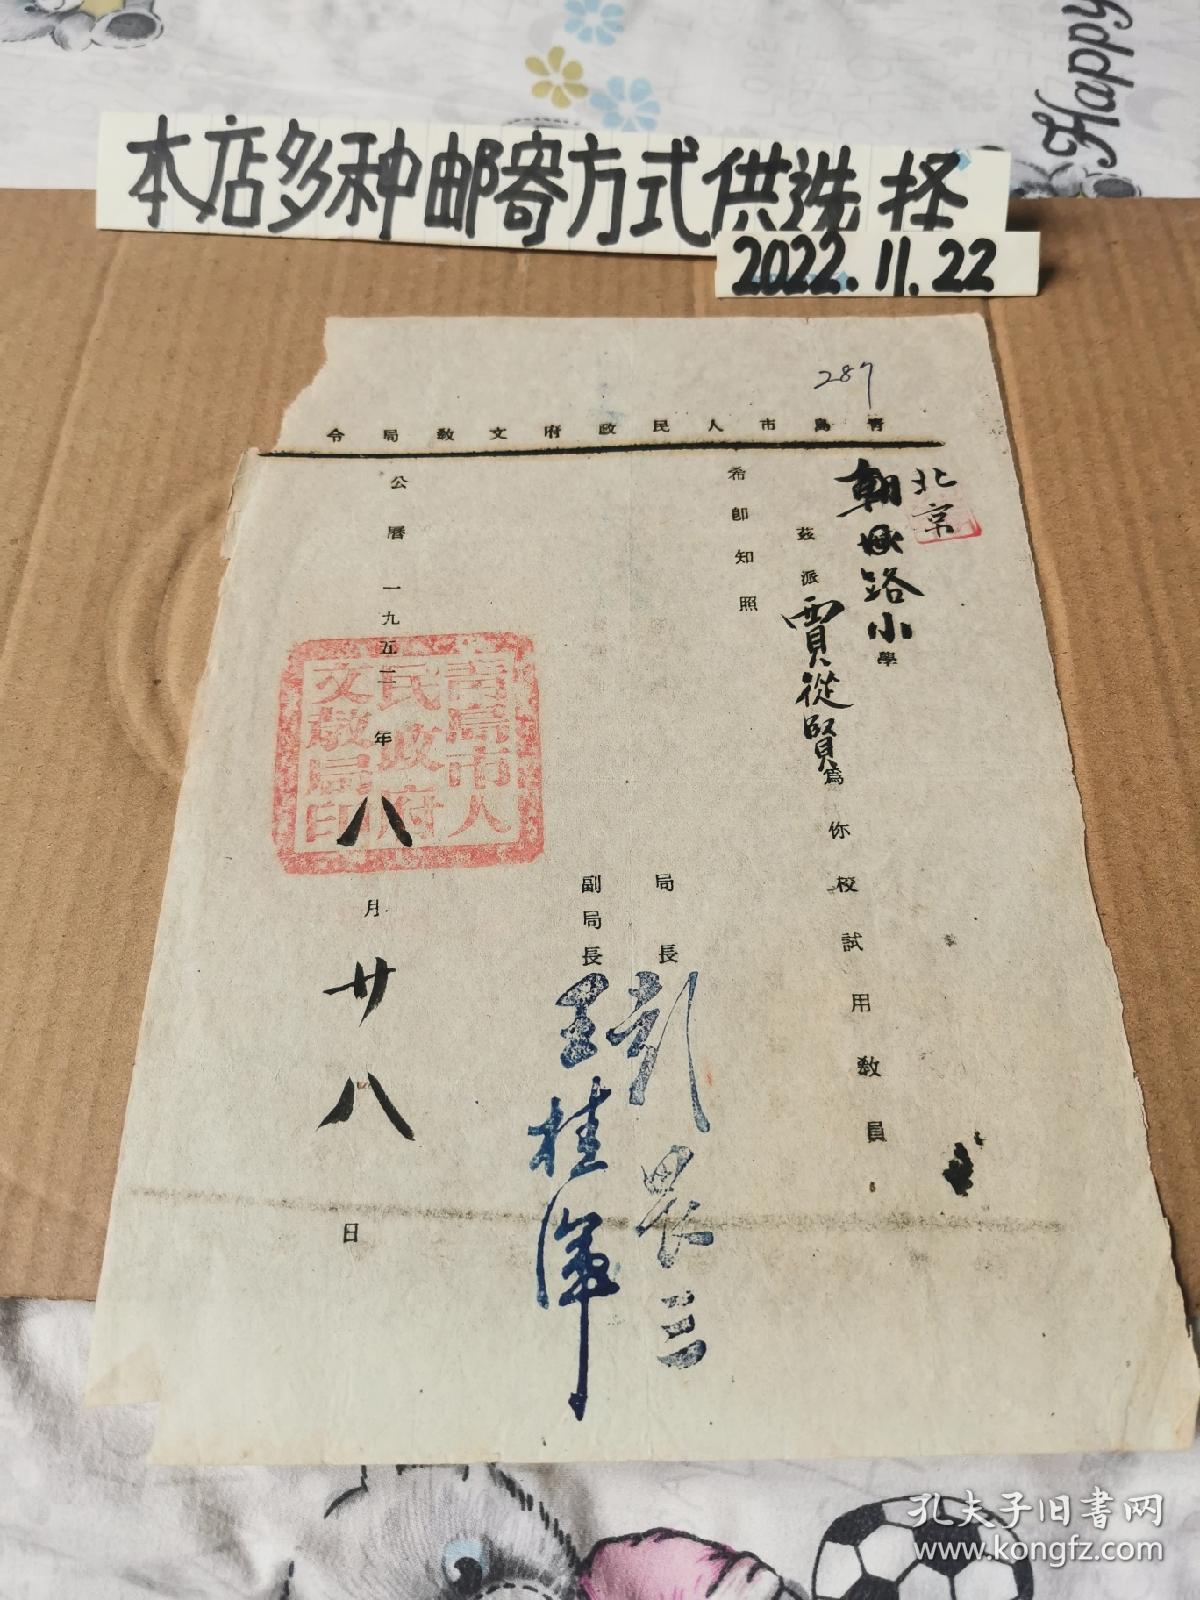 Happy
本店多种邮寄方式供选择
2022.11.22
287
青島市人民政府文教局令
北京
朝城路小學
茲派賈從賢為你校試用教員。
希即知照
局長
副局長王桂渾
公曆一九五二年八月廿八日
青島市人民政府文教局印
孔夫子旧书网
www.kongfz.com